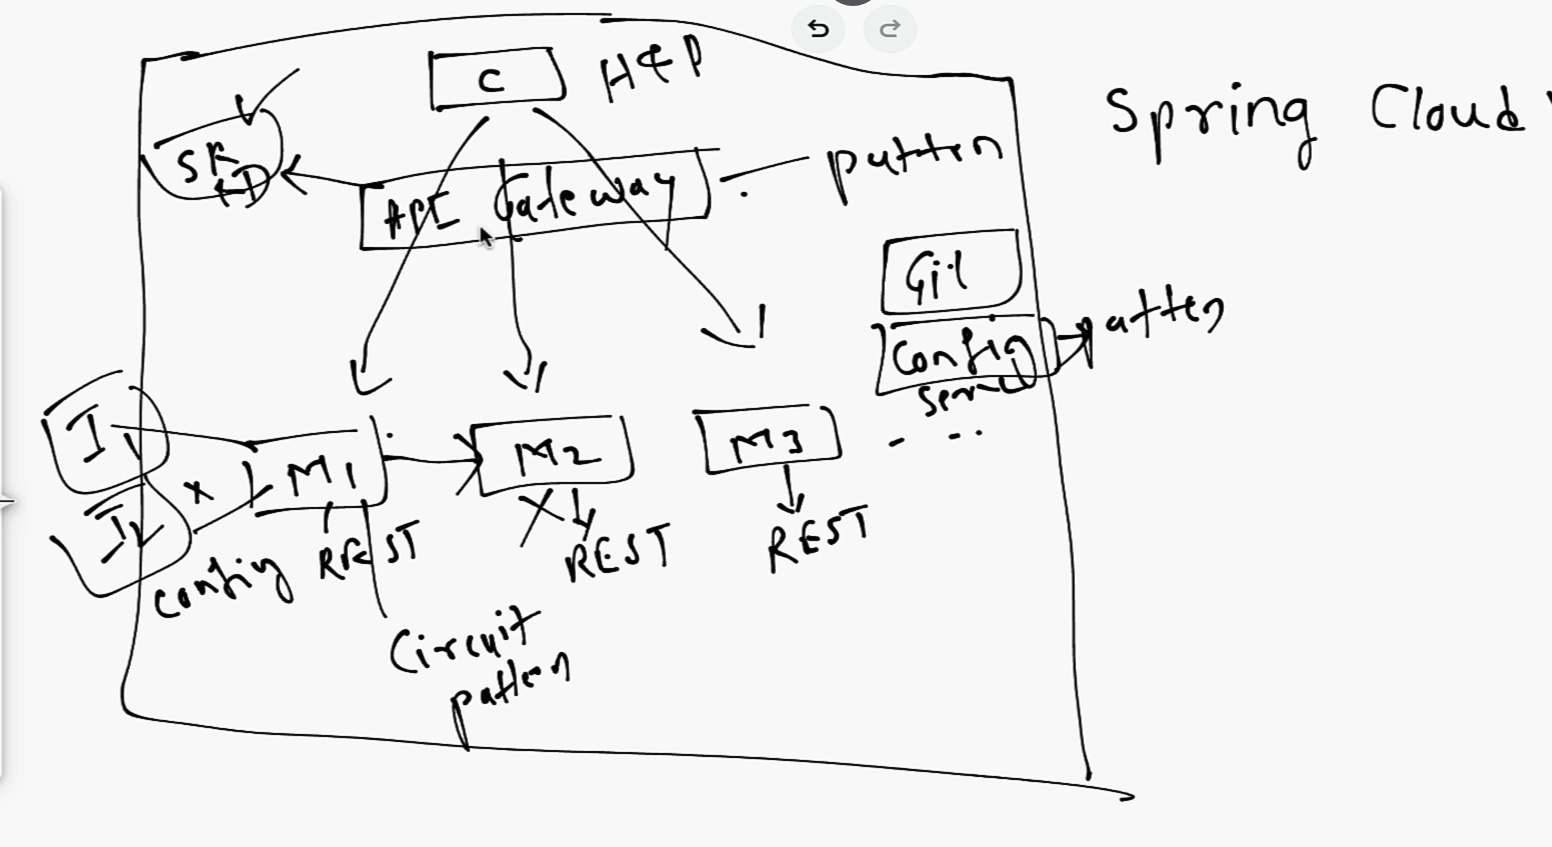 C
H&P
Spring Cloud
SR
&D
API Gateway
pattern
Git
Config
Server
patten
I1
I2
M1
M2
M3
config
REST
REST
REST
Circuit
pattern